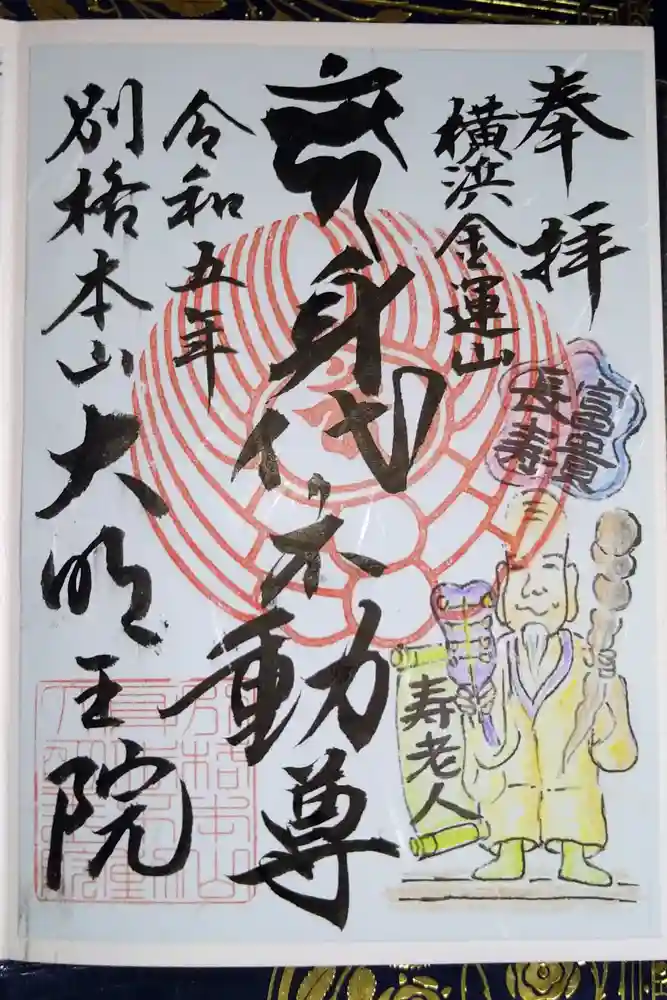 奉拝
横浜金運山
富貴
長寿
身代不動尊
寿老人
令和五年
別格本山大明王院